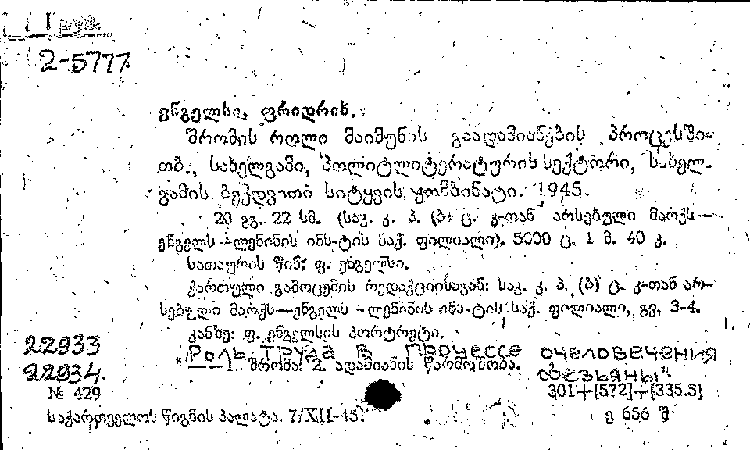 Груз.
2-5777
ენგელსი, ფრიდრიხ.
შრომის როლი მაიმუნის გაადამიანების პროცესში.
თბ., სახელგამი, პოლიტლიტერატურის სექტორი, სახელ-
გამის ბეჭდვითი სიტყვის კომბინატი. 1945.
20 გვ. 22 სმ. (საკ. კ. პ. (ბ) ც. კ-თან არსებული მარქს—
ენგელს-ლენინის ინს-ტის საქ. ფილიალი). 5000 ც. 1 მ. 40 კ.
სათაურის წინ: ფ. ენგელსი.
ქართული გამოცემის რედაქციისაგან: საკ. კ. პ. (ბ) ც. კ-თან არ-
სებული მარქს—ენგელს-ლენინის ინს-ტის საქ. ფილიალი, გვ. 3-4.
კანზე: ფ. ენგელსის პორტრეტი.
22933 "Роль труда в процессе очеловечения
22934 1. შრომა. 2. ადამიანის წარმოშობა. обезьяны"
№ 429 301+[572]+[335.5]
საქართველოს წიგნის პალატა. 7/XII-45. ე 656 შ